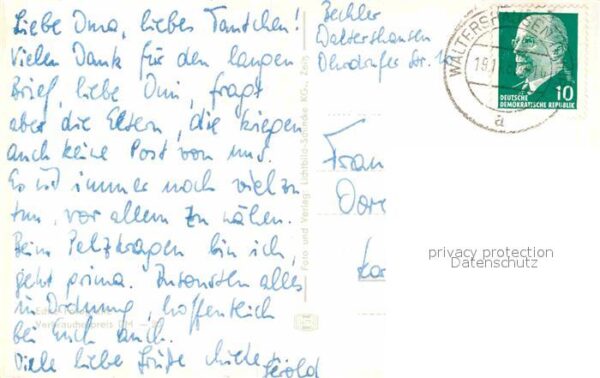 Liebe Oma, liebes Tantchen!
Vielen Dank für den langen
Brief, liebe Omi, fragt
aber die Eltern, die kriegen
auch keine Post von uns.
Es ist immer noch viel zu
tun, vor allem zu nähen.
Beim Pelzkragen bin ich,
geht prima. Ansonsten alles
in Ordnung, hoffentlich
bei Euch auch.
Viele liebe Grüße
Zechler
Waltershausen
Ohrdrufer Str.
WALTERSHAUSEN
19.1
a
DEUTSCHE
DEMOKRATISCHE REPUBLIK 10
Frau
Dor
privacy protection
Datenschutz
Foto und Verlag: Lichtbild-Schincke KG., Zeitz
Verbraucherpreis DM